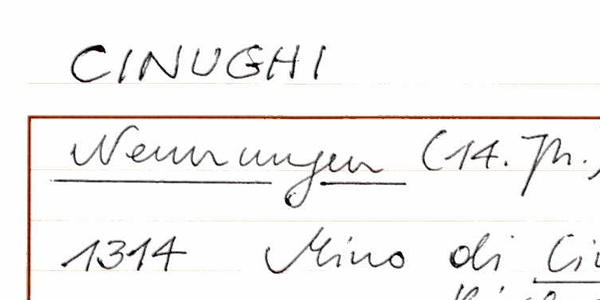 CINUGHI
Nennungen (14. Jh.)
1314 Mino di